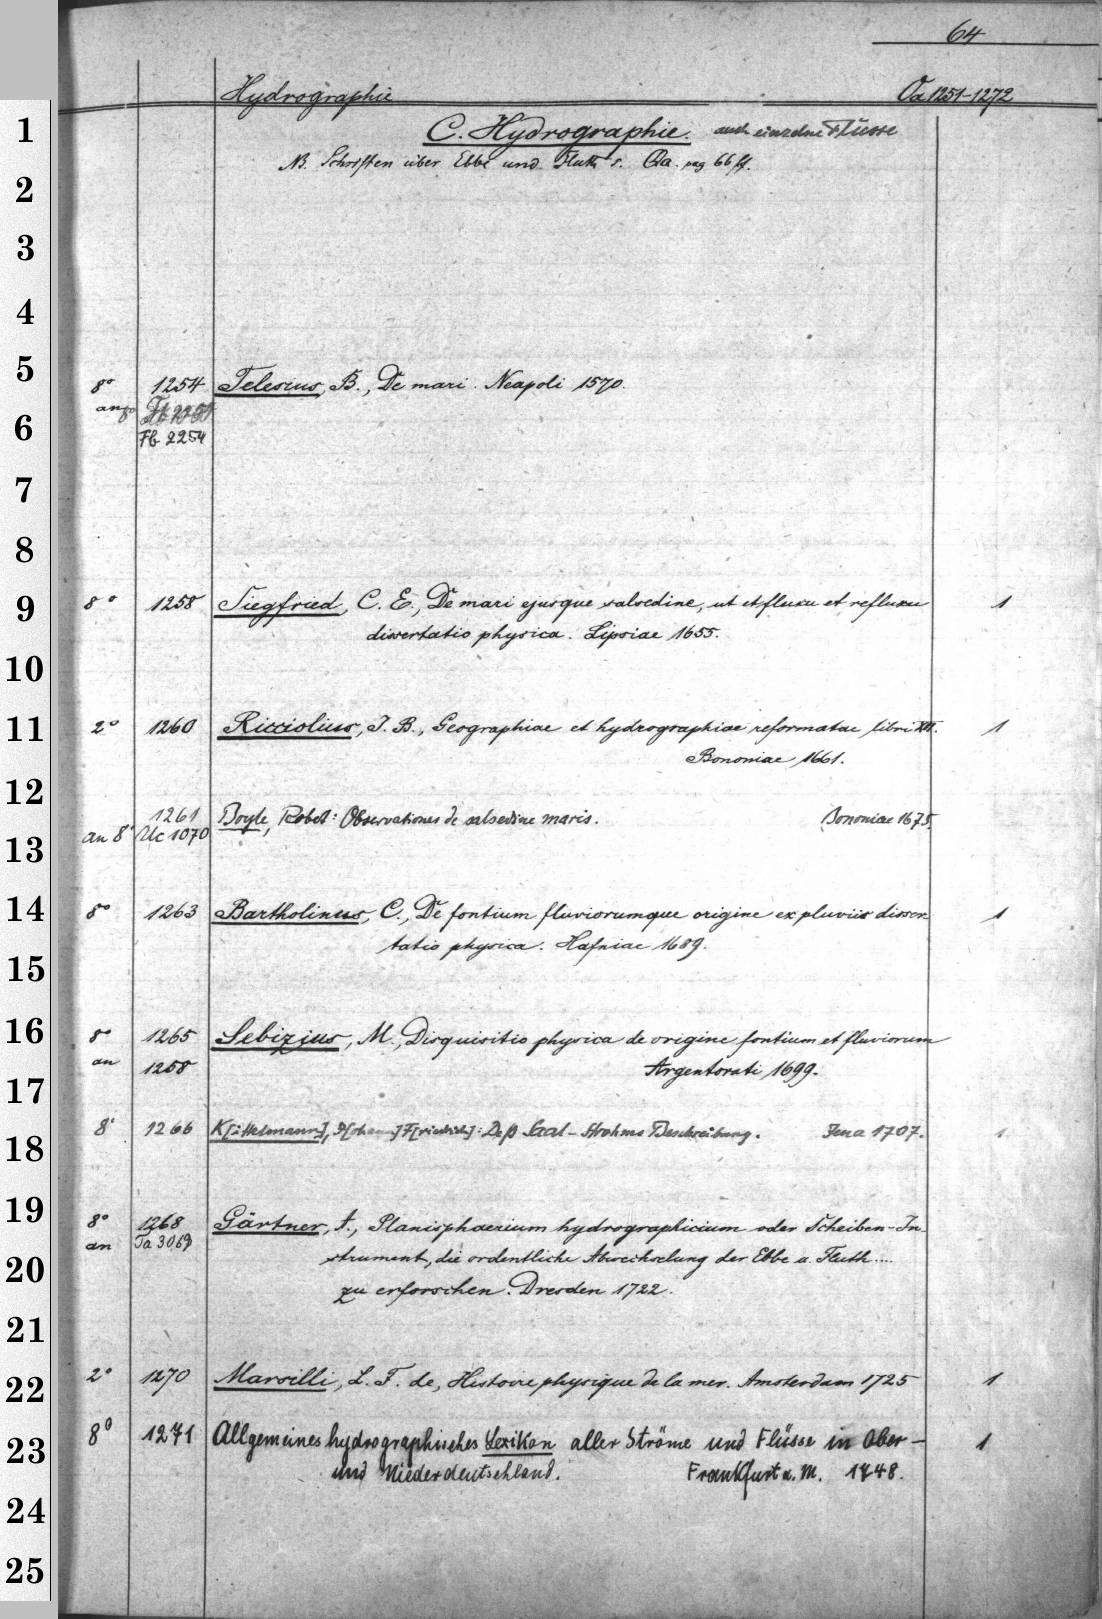 64
Hydrographie Oa 1251-1272
C. Hydrographie. auch einzelne Flüsse
NB. Schriften über Ebbe und Fluth s. Qa. pag 66 ff.
8° 1254 Telesius, B., De mari. Neapoli 1570.
an
Fb 2254
8° 1258 Siegfried, C. E., De mari ejusque salsedine, ut et fluxu et refluxu
dissertatio physica. Lipsiae 1655.
2° 1260 Ricciolius, J. B., Geographiae et hydrographiae reformatae libri XII. 1
Bononiae 1661.
1261 Boyle, Robet: Observationes de salsedine maris. Bononiae 1675.
an 8° Uc 1070
8° 1263 Bartholinus, C., De fontium fluviorumque origine ex pluviis disser
tatio physica. Hafniae 1689.
8° 1265 Sebizius, M., Disquisitio physica de origine fontium et fluviorum
an 1258 Argentorati 1699.
8° 1266 K[ittelmann], J[ohann] F[riedrich]: Deß Saal-Strohms Beschreibung. Jena 1707. 1
8° 1268 Gärtner, A., Planisphaerium hydrographicium oder Scheiben-In
an Ta 3069 strument, die ordentliche Abwechselung der Ebbe u. Fluth ....
zu erforschen. Dresden 1722.
2° 1270 Marsilli, L. F. de, Histoire physique de la mer. Amsterdam 1725 1
8° 1271 Allgemeines hydrographisches Lexikon aller Ströme und Flüsse in Ober- 1
und Niederdeutschland. Frankfurt a. M. 1748.
1
2
3
4
5
6
7
8
9
10
11
12
13
14
15
16
17
18
19
20
21
22
23
24
25